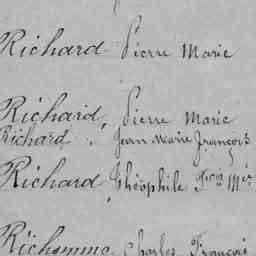 Richard Pierre Marie
Richard, Pierre Marie
Richard, Jean Marie François
Richard, Théophile Fçois Mie
Richomme Charles François